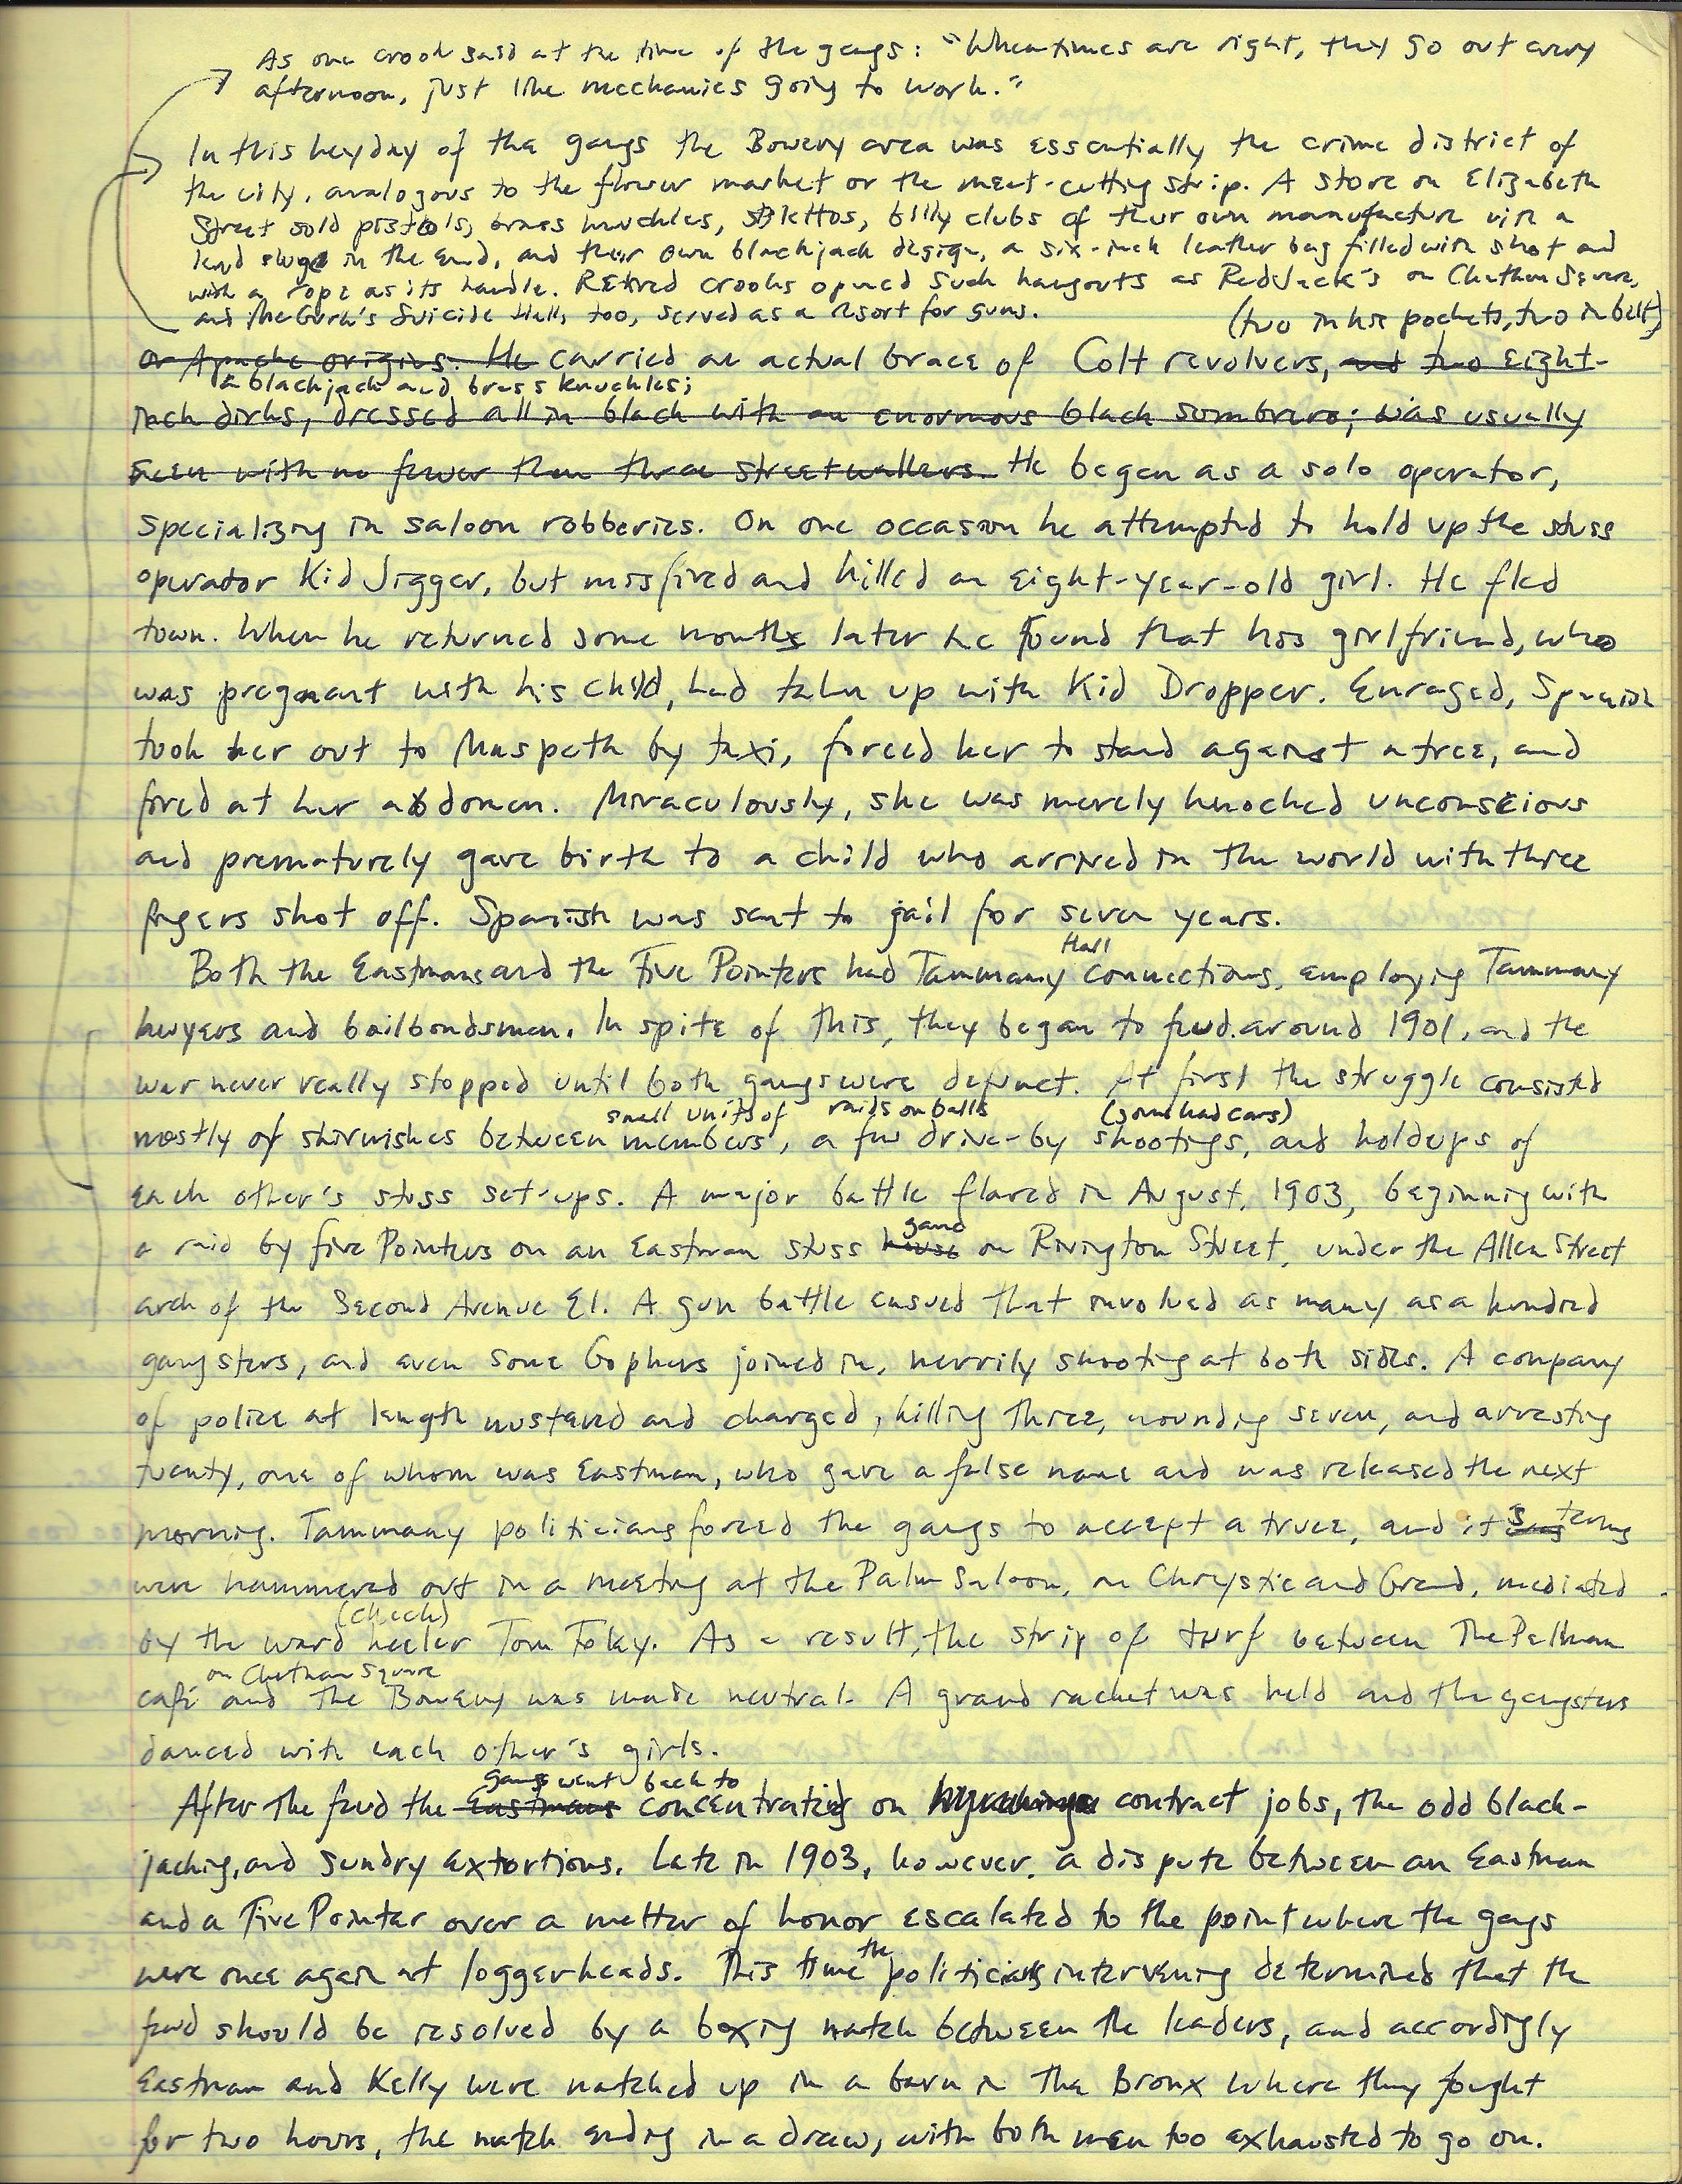 As one crook said at the time of the gangs: "When times are right, they go out every
afternoon, just like mechanics going to work."
In this heyday of the gangs the Bowery area was essentially the crime district of
the city, analogous to the flower market or the meat-cutting strip. A store on Elizabeth
Street sold pistols, brass knuckles, stilettos, billy clubs of their own manufacture with a
lead slug in the end, and their own blackjack design, a six-inch leather bag filled with shot and
with a rope as its handle. Retired crooks opened such hangouts as Red Jack's on Chatham Square,
and McGurk's Suicide Hall, too, served as a resort for guns.
(two in his pockets, two in belt)
or Apache origins. He carried an actual brace of Colt revolvers, and two eight-
a blackjack and brass knuckles;
inch dirks, dressed all in black with an enormous black sombrero; was usually
seen with no fewer than three streetwalkers. He began as a solo operator,
specializing in saloon robberies. On one occasion he attempted to hold up the stuss
operator Kid Jigger, but misfired and killed an eight-year-old girl. He fled
town. When he returned some months later he found that his girlfriend, who
was pregnant with his child, had taken up with Kid Dropper. Enraged, Spanish
took her out to Maspeth by taxi, forced her to stand against a tree, and
fired at her abdomen. Miraculously, she was merely knocked unconscious
and prematurely gave birth to a child who arrived in the world with three
fingers shot off. Spanish was sent to jail for seven years.
Hall
Both the Eastmans and the Five Pointers had Tammany connections, employing Tammany
lawyers and bailbondsmen. In spite of this, they began to feud around 1901, and the
war never really stopped until both gangs were defunct. At first the struggle consisted
small units of raids on balls (some had cars)
mostly of skirmishes between members, a few drive-by shootings, and holdups of
each other's stuss set-ups. A major battle flared in August, 1903, beginning with
game
a raid by Five Pointers on an Eastman stuss house on Rivington Street, under the Allen Street
arch of the Second Avenue El. A gun battle ensued that involved as many as a hundred
gangsters, and even some Gophers joined in, merrily shooting at both sides. A company
of police at length mustered and charged, killing three, wounding seven, and arresting
twenty, one of whom was Eastman, who gave a false name and was released the next
morning. Tammany politicians forced the gangs to accept a truce, and its terms
were hammered out in a meeting at the Palm Saloon, on Chrystie and Grand, mediated
(check)
by the ward heeler Tom Foley. As a result, the strip of turf between The Pelham
on Chatham Square
café and The Bowery was made neutral. A grand racket was held and the gangsters
danced with each other's girls.
gangs went back to
After the feud the Eastmans concentrating on contract jobs, the odd black-
jacking, and sundry extortions. Late in 1903, however, a dispute between an Eastman
and a Five Pointer over a matter of honor escalated to the point where the gangs
the
were once again at loggerheads. This time politicians intervening determined that the
feud should be resolved by a boxing match between the leaders, and accordingly
Eastman and Kelly were matched up in a barn in The Bronx where they fought
for two hours, the match ending in a draw, with both men too exhausted to go on.